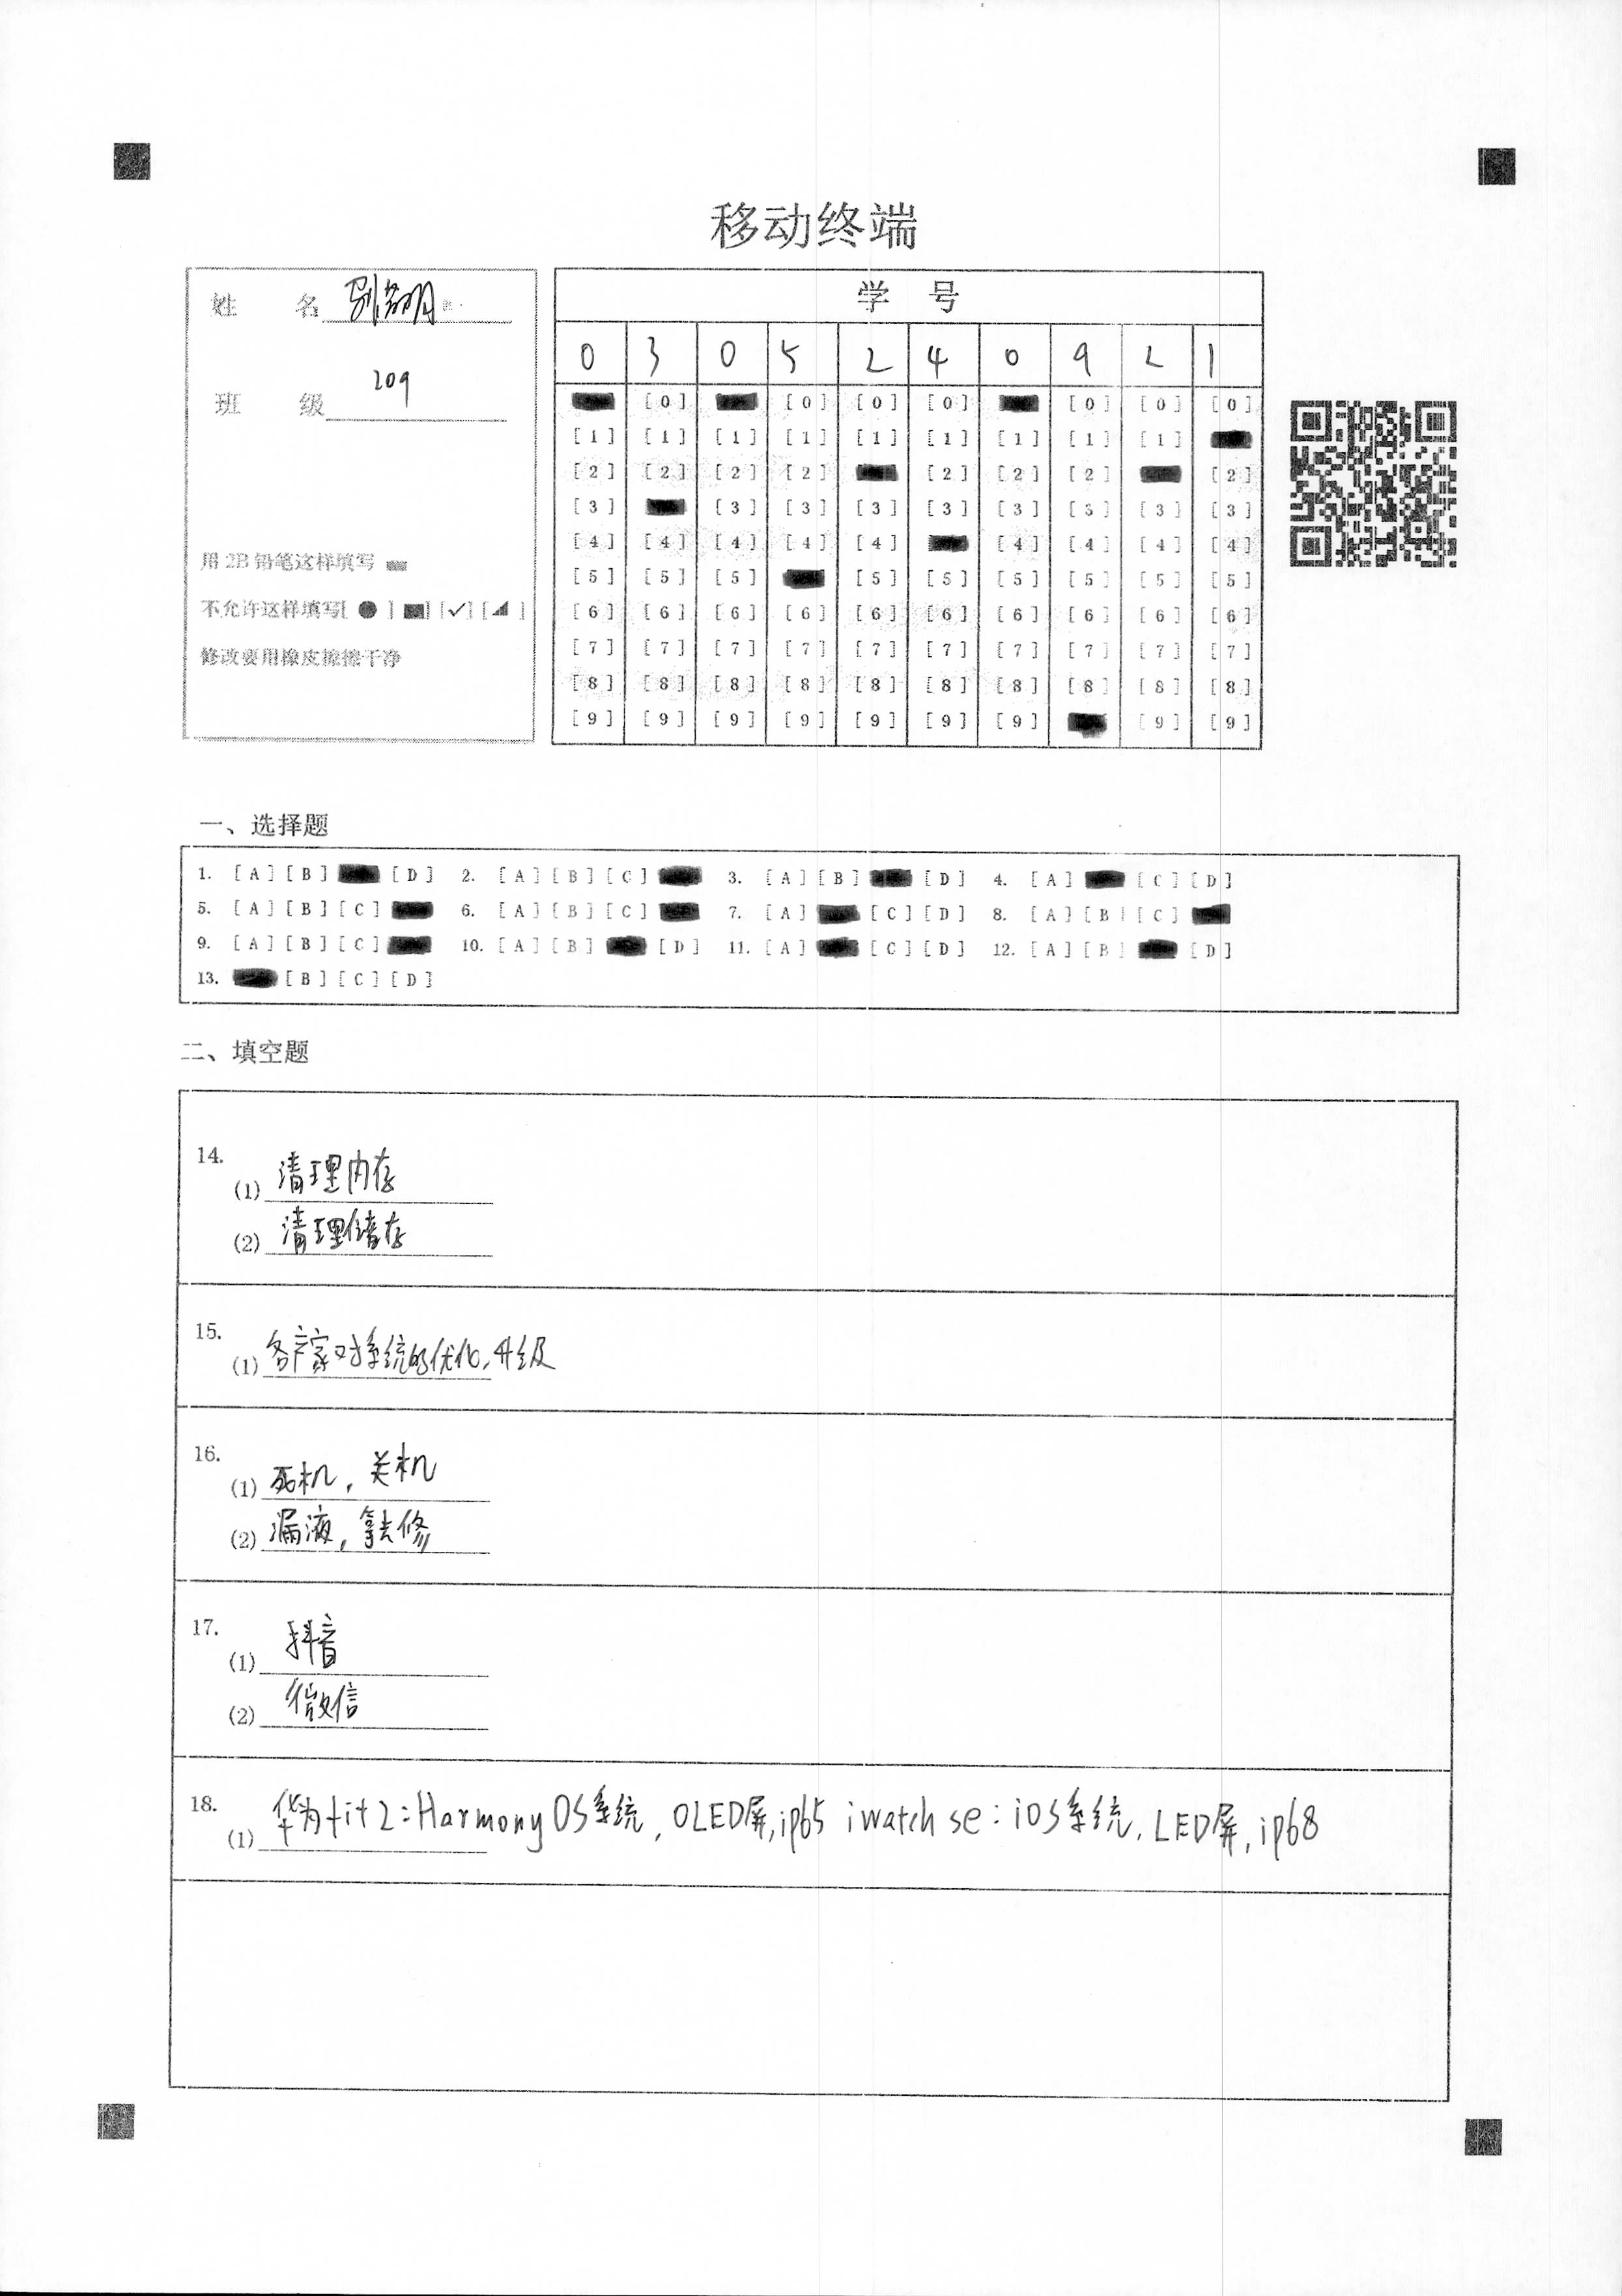 移动终端
姓 名
班 级 209
用 2B 铅笔这样填写
不允许这样填写[ ● ] [ ■ ] [✓] [◢ ]
修改要用橡皮擦擦干净
学 号
0 3 0 5 2 4 0 9 2 1
[0] [0] [0] [0] [0] [0] [0]
[1] [1] [1] [1] [1] [1] [1] [1] [1]
[2] [2] [2] [2] [2] [2] [2] [2]
[3] [3] [3] [3] [3] [3] [3] [3] [3]
[4] [4] [4] [4] [4] [4] [4] [4] [4]
[5] [5] [5] [5] [5] [5] [5] [5] [5]
[6] [6] [6] [6] [6] [6] [6] [6] [6] [6]
[7] [7] [7] [7] [7] [7] [7] [7] [7] [7]
[8] [8] [8] [8] [8] [8] [8] [8] [8] [8]
[9] [9] [9] [9] [9] [9] [9] [9] [9]
一、选择题
1. [A] [B] [D] 2. [A] [B] [C] 3. [A] [B] [D] 4. [A] [C] [D]
5. [A] [B] [C] 6. [A] [B] [C] 7. [A] [C] [D] 8. [A] [B] [C]
9. [A] [B] [C] 10. [A] [B] [D] 11. [A] [C] [D] 12. [A] [B] [D]
13. [B] [C] [D]
二、填空题
14.
(1) 清理内存
(2) 清理储存
15.
(1) 各产家对系统的优化,升级
16.
(1) 死机,关机
(2) 漏液,拿去修
17.
(1) 抖音
(2) 微信
18.
(1) 华为fit2:Harmony OS系统,OLED屏,ip65 iwatch se:iOS系统,LED屏,ip68